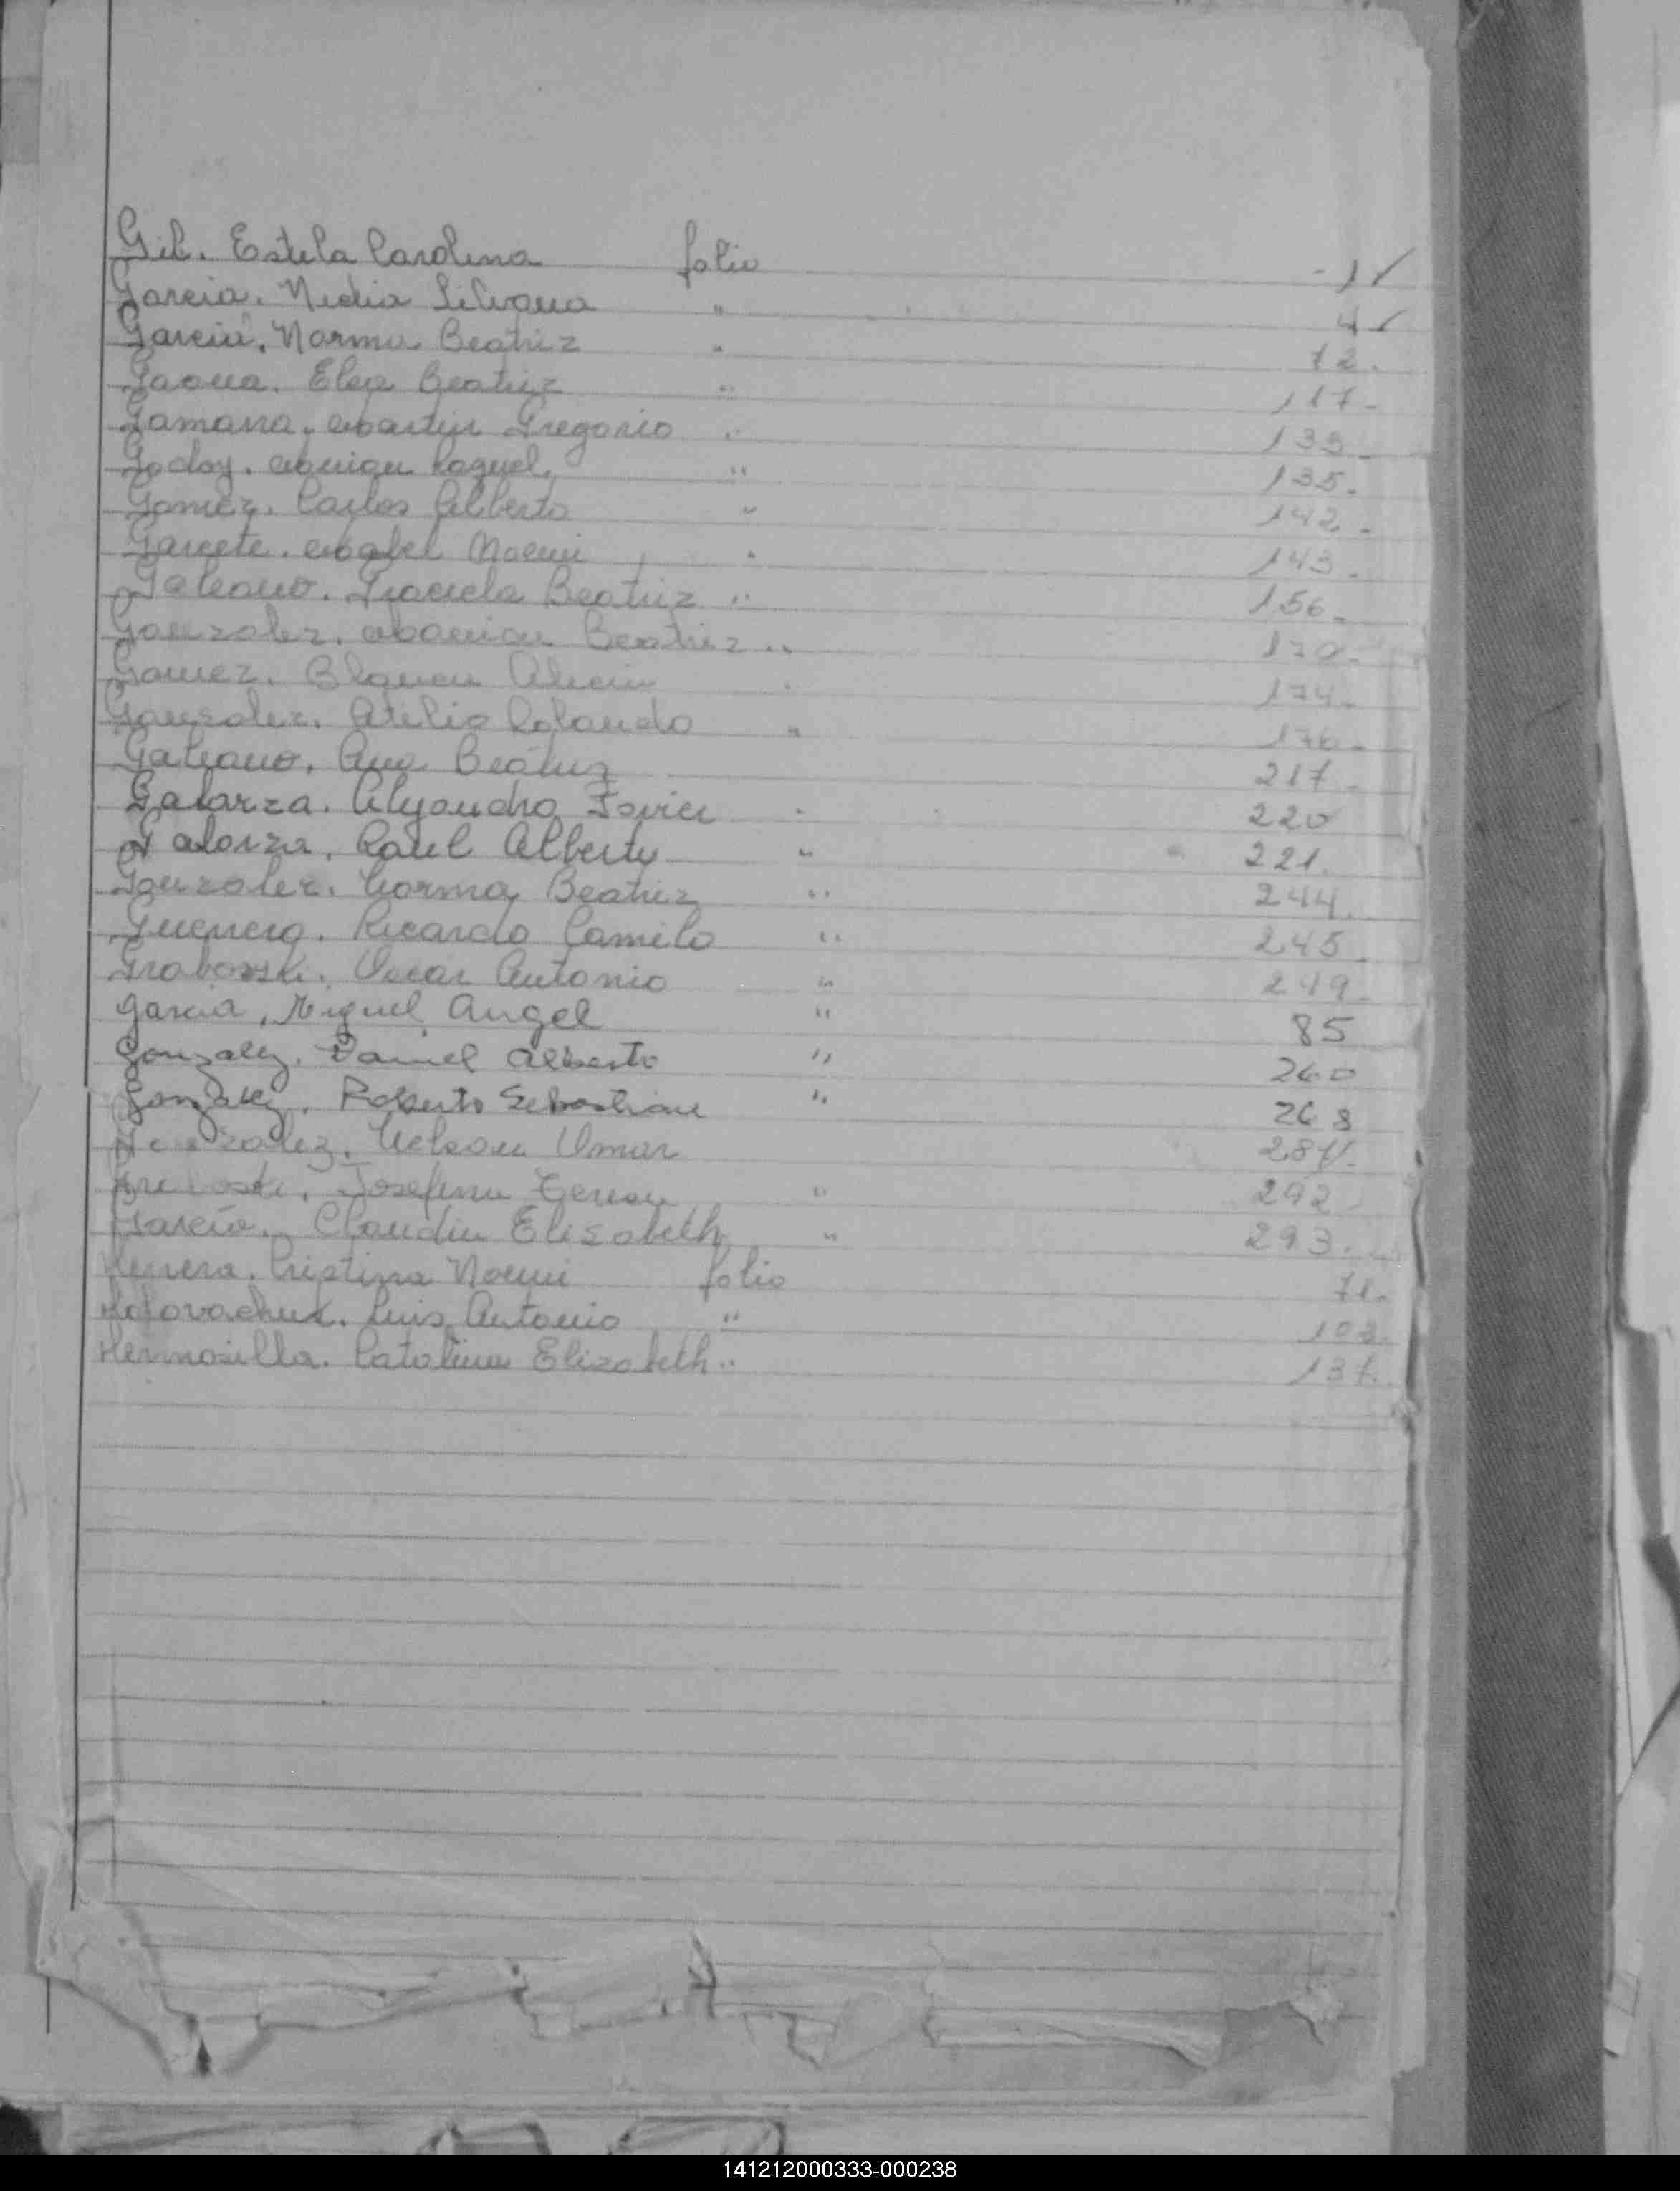 Gil. Estela Carolina folio - 1 ✓
Garcia. Nidia Silvana " 4 ✓
Garcia. Norma Beatriz " 72.
Gaona. Elsa Beatriz " 117-
Gamarra, Martin Gregorio " 133_
Godoy. Miriam Raquel. " 135.
Gomez. Carlos Alberto " 142-
Garcete. Mabel Noemi " 143-
Galeano. Graciela Beatriz " 156-
Gonzalez. Beatriz " 170-
Gomez. Blanca Alicia " 174-
Gonzalez. Atilio Rolando " 176-
Galeano. Ana Beatriz 217-
Galarza. Alejandro Javier " 220
Galarza. Raul Alberto " 221.
Gonzalez. Norma Beatriz " 244.
Guerrero. Ricardo Camilo " 245_
Oscar Antonio " 249-
Garcia, Miguel Angel " 85
Gonzalez. Daniel Alberto " 260
Gonzalez. Roberto Sebastian " 268
Gonzalez. Nelson Omar
Josefina Teresa " 292
Garcia. Claudia Elisabeth " 293.
Herrera. Cristina Noemi folio 71.
Holovachuk. Luis Antonio "
Hermosilla. Catalina Elizabeth " 137.
141212000333-000238